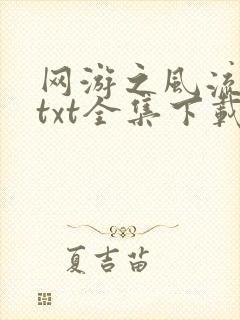 网游之风流
txt全集下载
夏吉苗